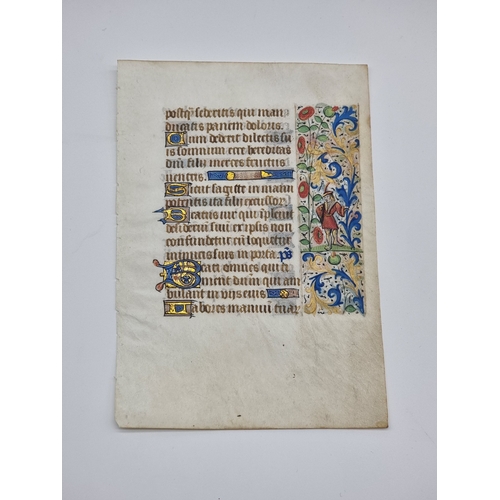 postq̄ sederitis qui man
ducatis panem doloris.
Cum dederit dilectis su
is somnum ecce hereditas
dn̄i filii merces fructus
ventris
Sicut sagitte in manu
potentis ita filii excussor
Beatus vir qui īplevit
desideriū suū ex ipsis non
confundetur cū loquetur
inimicis suis in porta. ps̄
Beati omnes qui ti
ment dominū qui am
bulant in viis eius
Labores manuū tuar